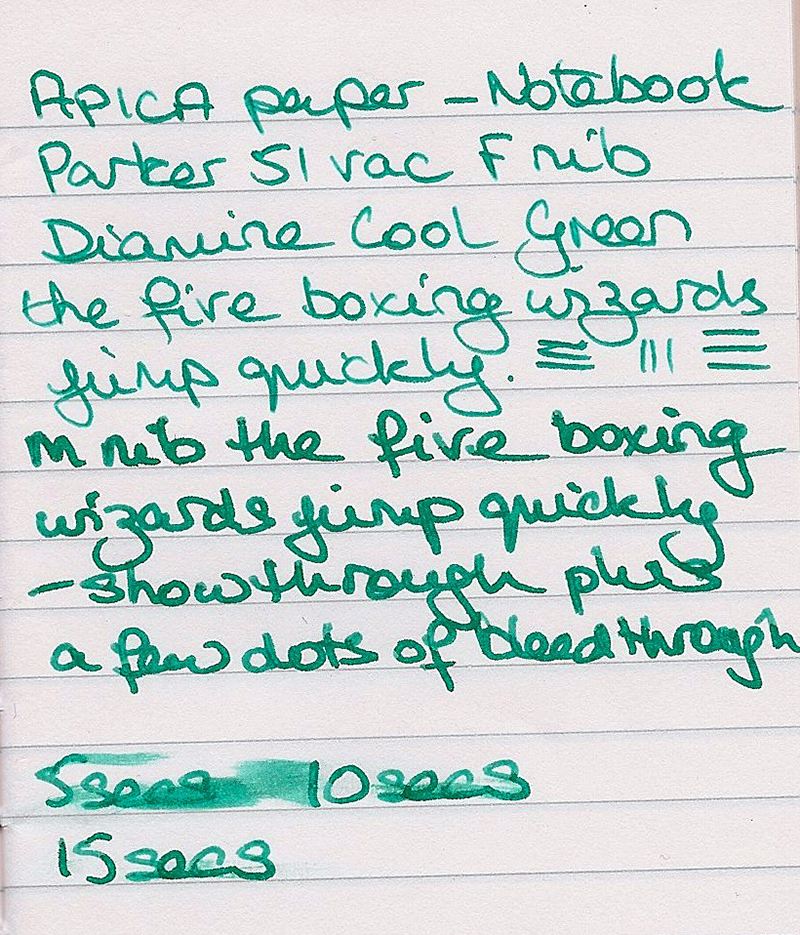 APICA paper - Notebook
Parker 51 vac F nib
Diamine Cool Green
the five boxing wizards
jump quickly.
M nib the five boxing
wizards jump quickly
- showthrough plus
a few dots of bleedthrough
5secs 10secs
15secs